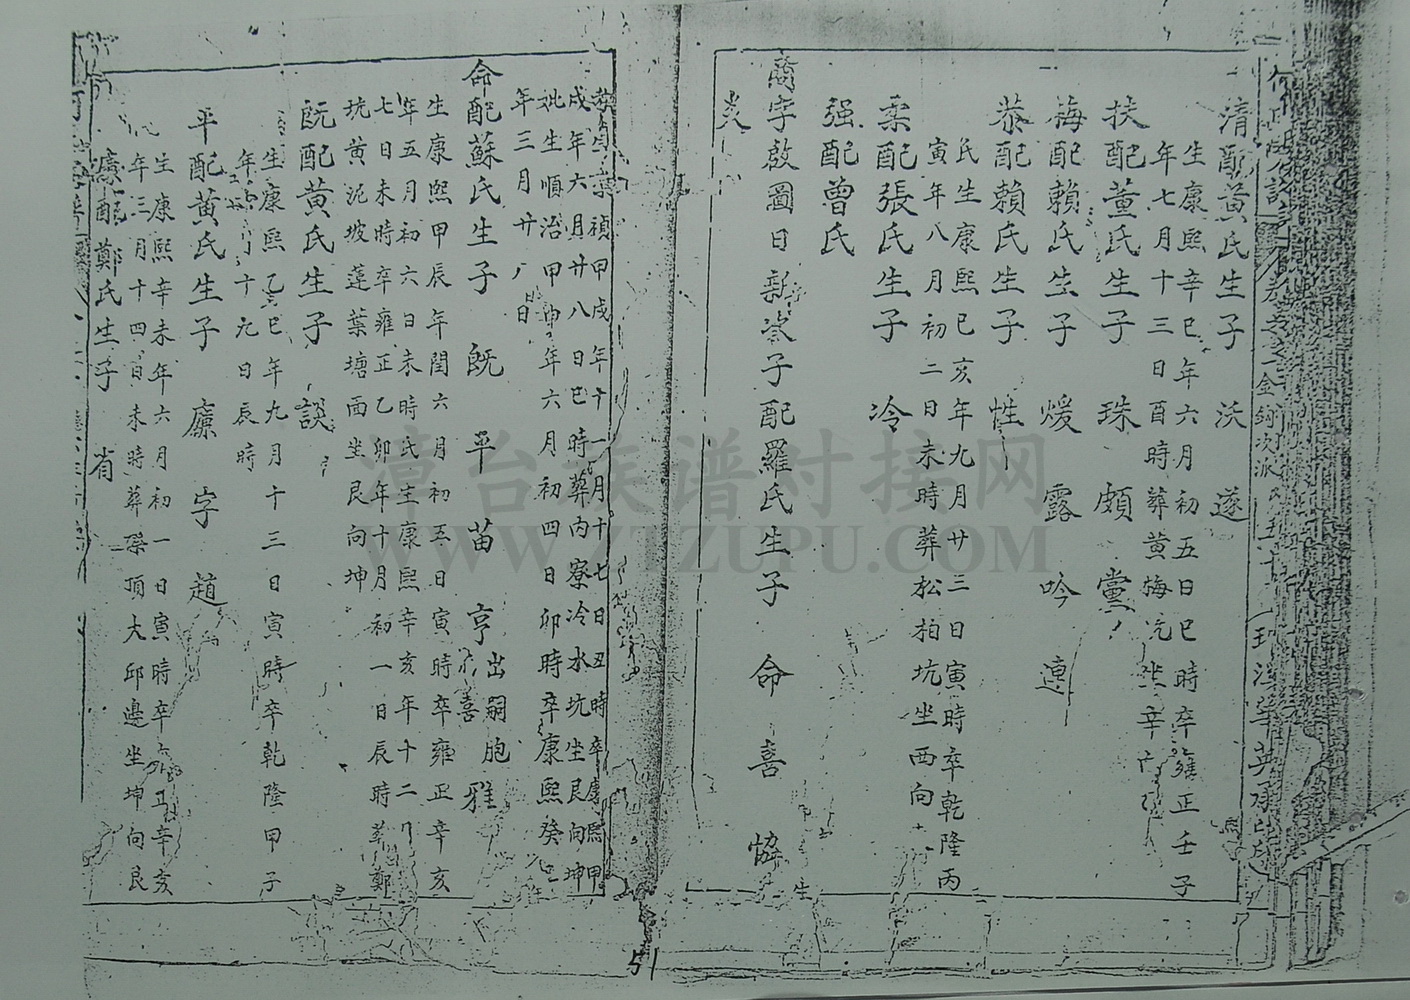 清配黄氏生子 沃 遂
生康熙辛巳年六月初五日巳時卒雍正壬子
年七月十三日酉時葬黄梅坑坐辛
扶配董氏生子 珠 頗 黨
梅配賴氏生子 煖 露 吟 連
恭配賴氏生子 性
氏生康熙己亥年九月廿三日寅時卒乾隆丙
寅年八月初二日未時葬松柏坑坐西向
柔配張氏生子 冷
强配曾氏
字啟圖日新 子配羅氏生子 命 喜 恊
炎
禎甲戌年十一月十七日丑時卒康熙甲
戌年六月廿八日巳時葬内寮冷水坑坐艮向坤
妣生順治甲申年六月初四日卯時卒康熙癸巳
年三月廿八日
命配蘇氏生子 既 平 苗 亨出嗣胞 喜 雅
生康熙甲辰年閏六月初五日寅時卒雍正辛亥
年五月初六日未時氏生康熙辛亥年十二
七日未時卒雍正乙卯年十月初一日辰時葬鄭
坑黄泥坡蓮葉塘面坐艮向坤
既配黄氏生子 談
生康熙乙巳年九月十三日寅時卒乾隆甲子
年 月十九日辰時
平配黄氏生子 廉 字 趙
生康熙辛未年六月初一日寅時卒雍正辛亥
年三月十四日未時葬 頂大邱邊坐坤向艮
廉配鄭氏生子 省
51
漳台族谱对接网
WWW.ZTZUPU.COM